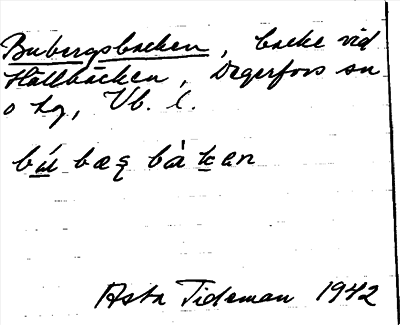 Bubergsbacken, backe vid
Hallbäcken, Degerfors sn
o hg, Vb. l.
bu bæg bàken
Asta Tideman 1942